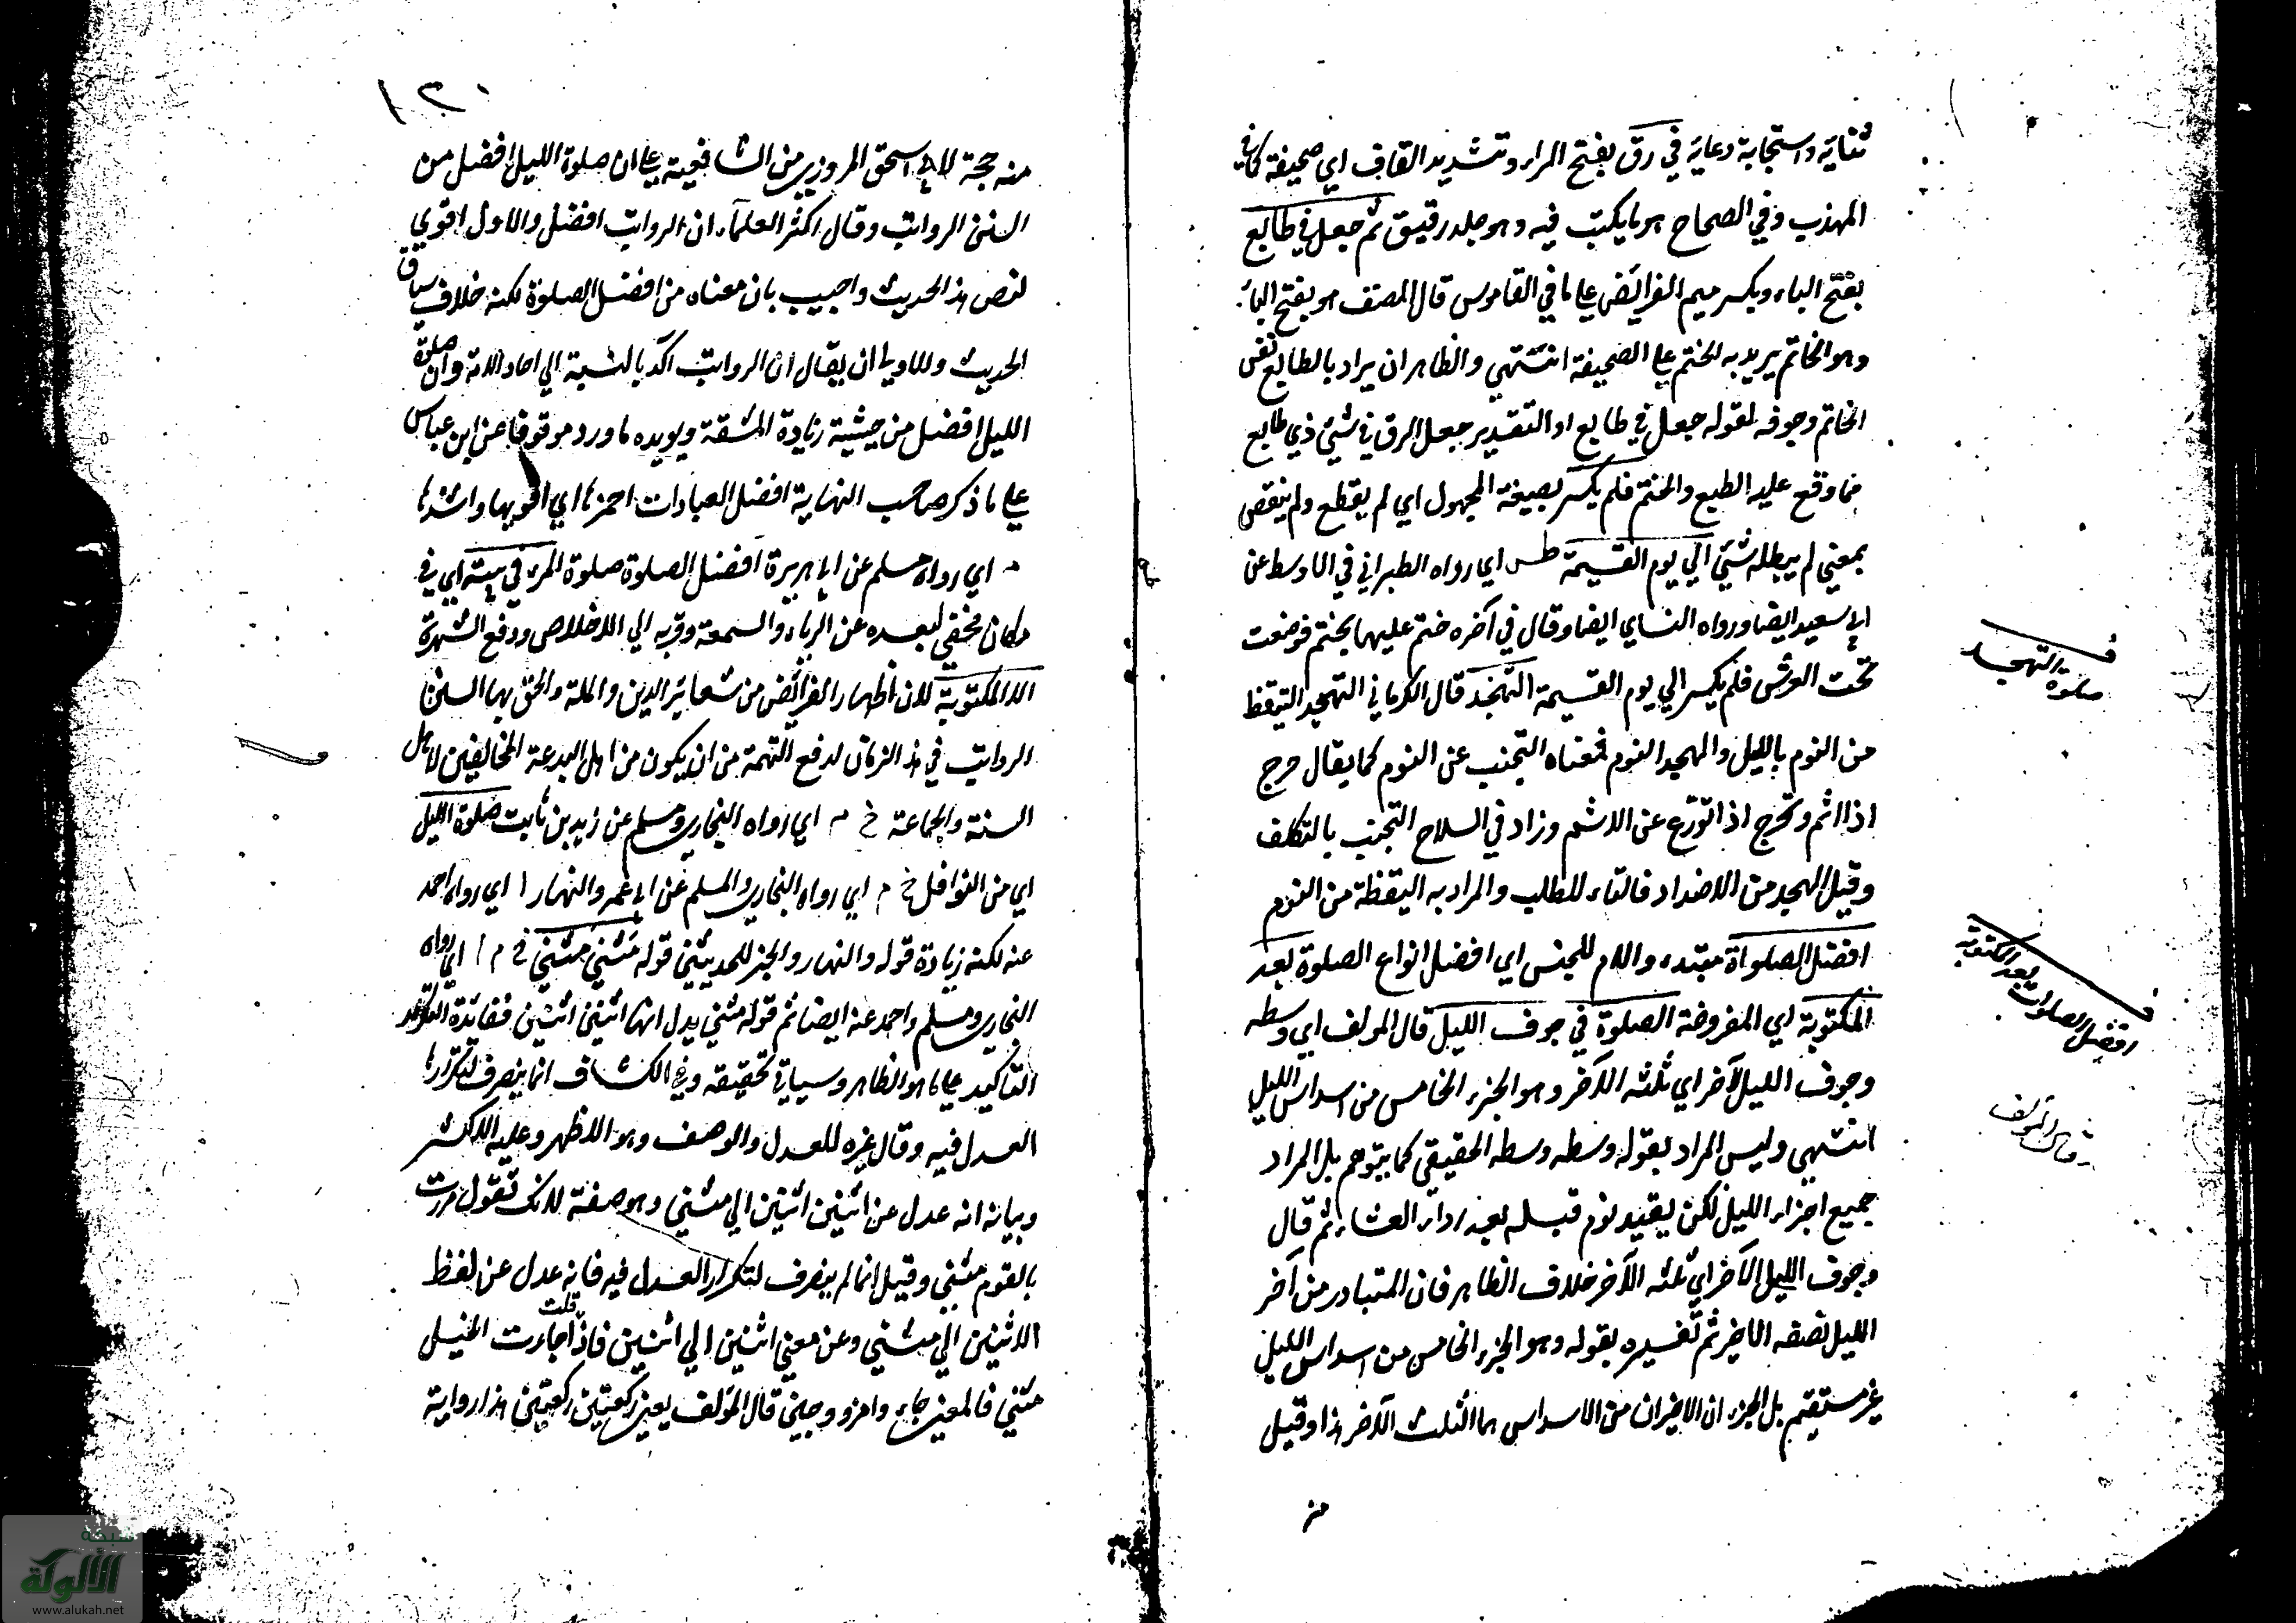 ثنائه واستجابة دعائه في رق بفتح الراء وتشديد القاف اي صحيفة كما في
المهذب وفي الصحاح هو ما يكتب فيه وهو جلد رقيق ثم جعل في طابع
بفتح الباء ويكسر ميم الفرائض على ما في القاموس قال المصنف هو بفتح الباء
وهو الخاتم يريد به الختم على الصحيفة انتهى والظاهر ان يراد بالطابع نفس
الخاتم وجوفه لقوله جعل في طابع او التقدير جعل الرق في شيئ ذي طابع
مما وقع عليه الطبع والختم فلم يكسر بصيغة المجهول اي لم يقطع ولم ينقض
بمعني لم يبطله شيئ الي يوم القيمة طس اي رواه الطبراني في الاوسط عن
ابي سعيد ايضا ورواه النسائي ايضا وقال في آخره ختم عليها بختم فوضعت
تحت العرش فلم يكسر الي يوم القيمة التهجد قال الكرماني التهجد التيقظ
من النوم بالليل والهجد النوم فمعناه التجنب عن النوم كما يقال حرج
اذا اثم وتحرج اذا تورع عن الاثم وزاد في السلاح التجنب بالتكلف
وقيل الهجد من الاضداد فالتاء للطلب والمراد به اليقظة من النوم
افضل الصلواة مبتدء واللام للجنس اي افضل انواع الصلوة بعد
المكتوبة اي المفروضة الصلوة في جوف الليل قال المولف اي وسطه
وجوف الليل الآخر اي ثلثه الآخر وهو الجزء الخامس من اسداس الليل
انتهي وليس المراد بقوله وسطه وسطه الحقيقي كما يتوهم بل المراد
جميع اجزاء الليل لكن يقيد نوم قبله بعد اداء العشاء ثم قال
وجوف الليل الآخر اي ثلثه الآخر خلاف الظاهر فان المتبادر من آخر
الليل نصفه الاخير ثم تفسيره بقوله وهو الجزء الخامس من اسداس الليل
غير مستقيم بل الجزء ان الاخيران من الاسداس هما الثلث الآخر هذا وقيل
منه
صلوة التهجد
افضل الصلوات بعد المكتوبة
قال المولف
١٢٠
منه حجة لابي اسحق المروزي من الشافعية علي ان صلوة الليل افضل من
السنن الرواتب وقال اكثر العلماء ان الرواتب افضل والاول اقوي
لنص هذا الحديث واجيب بان معناه من افضل الصلوة لكنه خلاف سياق
الحديث والاولي ان يقال ان الرواتب آكد بالنسبة الي احاد الامة وان صلوة
الليل افضل من حيثية زيادة المشقة ويويده ما ورد موقوفا عن ابن عباس
علي ما ذكر صاحب النهاية افضل العبادات احمزها اي اقويها واشدها
م اي رواه مسلم عن ابي هريرة افضل الصلوة صلوة المرء في بيته اي في
مكان مخفي لبعده عن الرياء والسمعة وقربه الي الاخلاص ودفع الشهرة
الا المكتوبة لان اظهار الفرائض من شعائر الدين والملة والحق بها السنن
الرواتب في هذا الزمان لدفع التهمة من ان يكون من اهل البدعة المخالفين لاهل
السنة والجماعة خ م اي رواه البخاري ومسلم عن زيد بن ثابت صلوة الليل
اي من النوافل خ م اي رواه البخاري والمسلم عن ابن عمر والنهار ا اي رواه احمد
عنه لكنه زيادة قوله والنهار والخبر للحديثين قوله مثني مثني خ م ا اي رواه
البخاري ومسلم واحمد عنه ايضا ثم قوله مثني يدل انها اثنين اثنين ففائدة
التاكيد علي ما هو الظاهر وسياتي تحقيقه وفي الكشاف انما ينصرف لتكرارها
العدل فيه وقال غيره للعدل والوصف وهو الاظهر وعليه الاكثر
وبيانه انه عدل عن اثنين اثنين الي مثني وهو صفة لانك تقول مررت
بالقوم مثني وقيل انما لم ينصرف لتكرار العدل فيه فانه عدل عن لفظ
الاثنين الي مثني وعن معني اثنين الي اثنين فاذا قلت جاءت الخيل
مثني فالمعني جاء وامزدوجين قال المؤلف يعني ركعتين ركعتين هذا رواية
شبكة
الألوكة
www.alukah.net